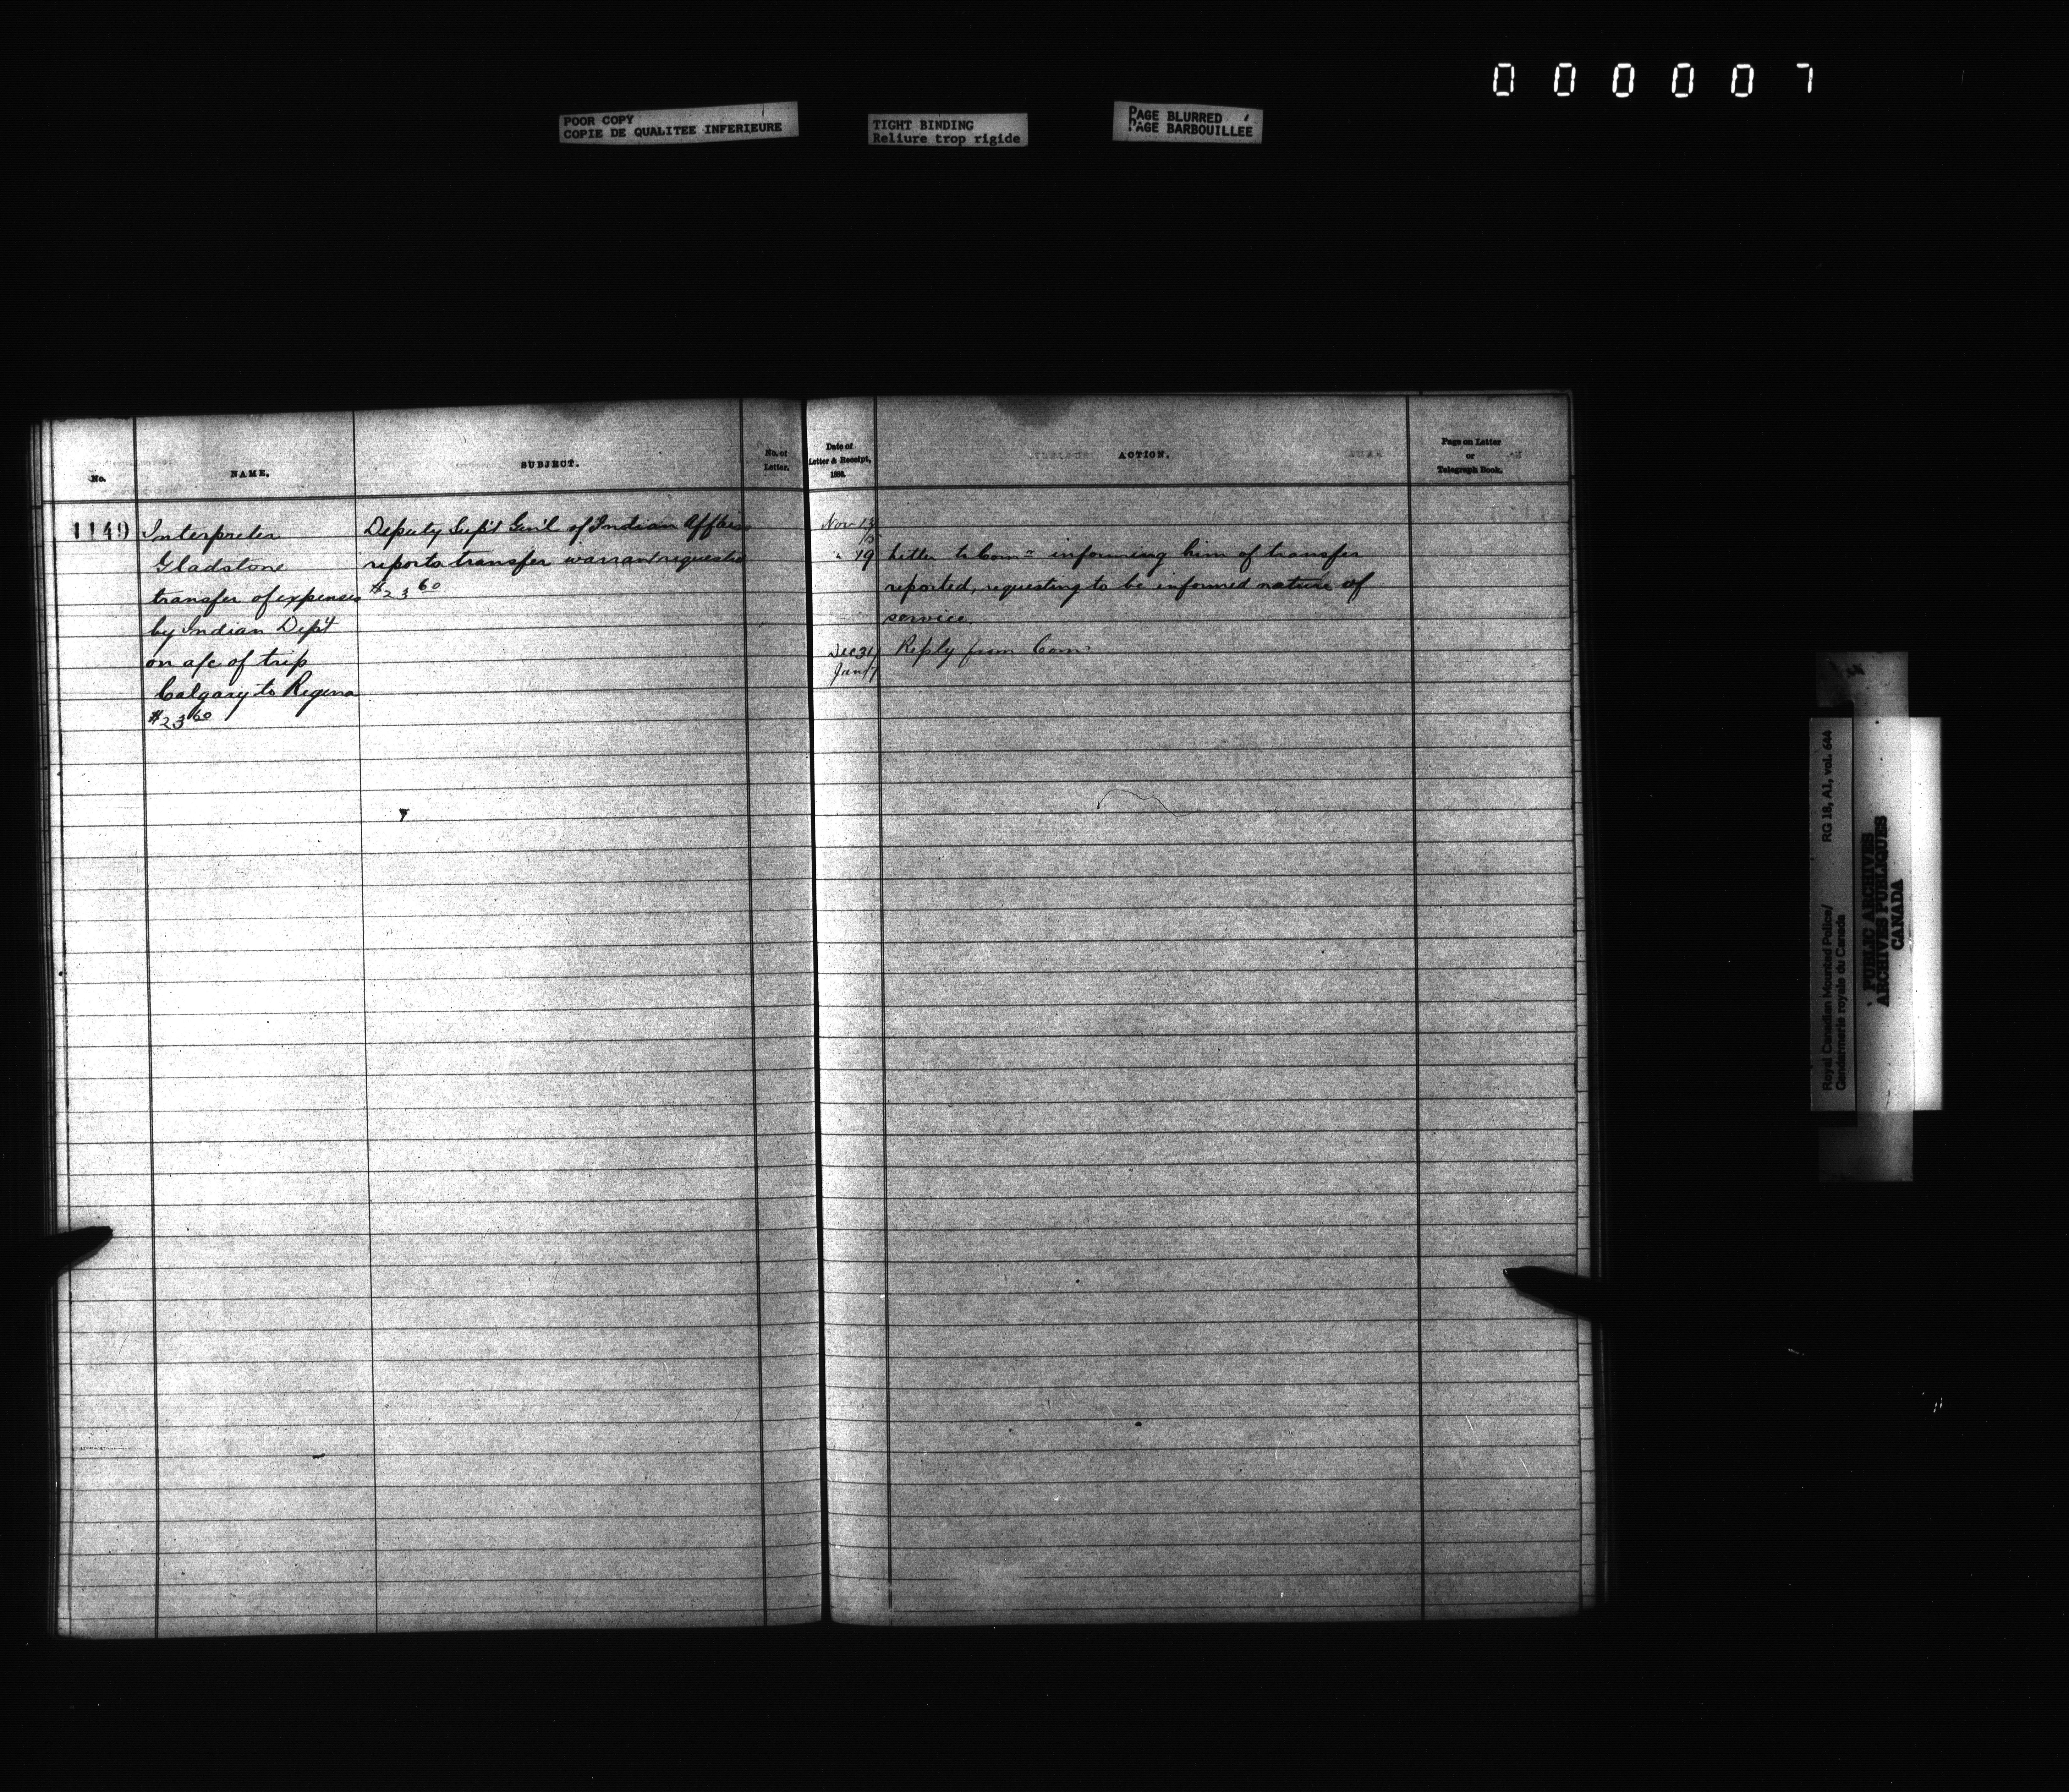 0 0 0 0 0 7
POOR COPY
COPIE DE QUALITEE INFERIEURE
TIGHT BINDING
Reliure trop rigide
PAGE BLURRED
PAGE BARBOUILLEE
No.
NAME.
SUBJECT.
No. of
Letter.
Date of
Letter & Receipt,
ACTION.
Page on Letter
or
Telegraph Book.
1149
Interpreter
Gladstone
transfer of expenses
by Indian Dep't
on a/c of trip
Calgary to Regina
$23 60
Deputy Sup't Gen'l of Indian Affairs
reports transfer warrant requested
$23 60
Nov 13
15
" 19 Letter to Comr informing him of transfer
reported, requesting to be informed nature of
service.
Dec 31 Reply from Comr
Jan 7
Royal Canadian Mounted Police/
Gendarmerie royale du Canada
RG 18, A1, vol. 644
PUBLIC ARCHIVES
ARCHIVES PUBLIQUES
CANADA